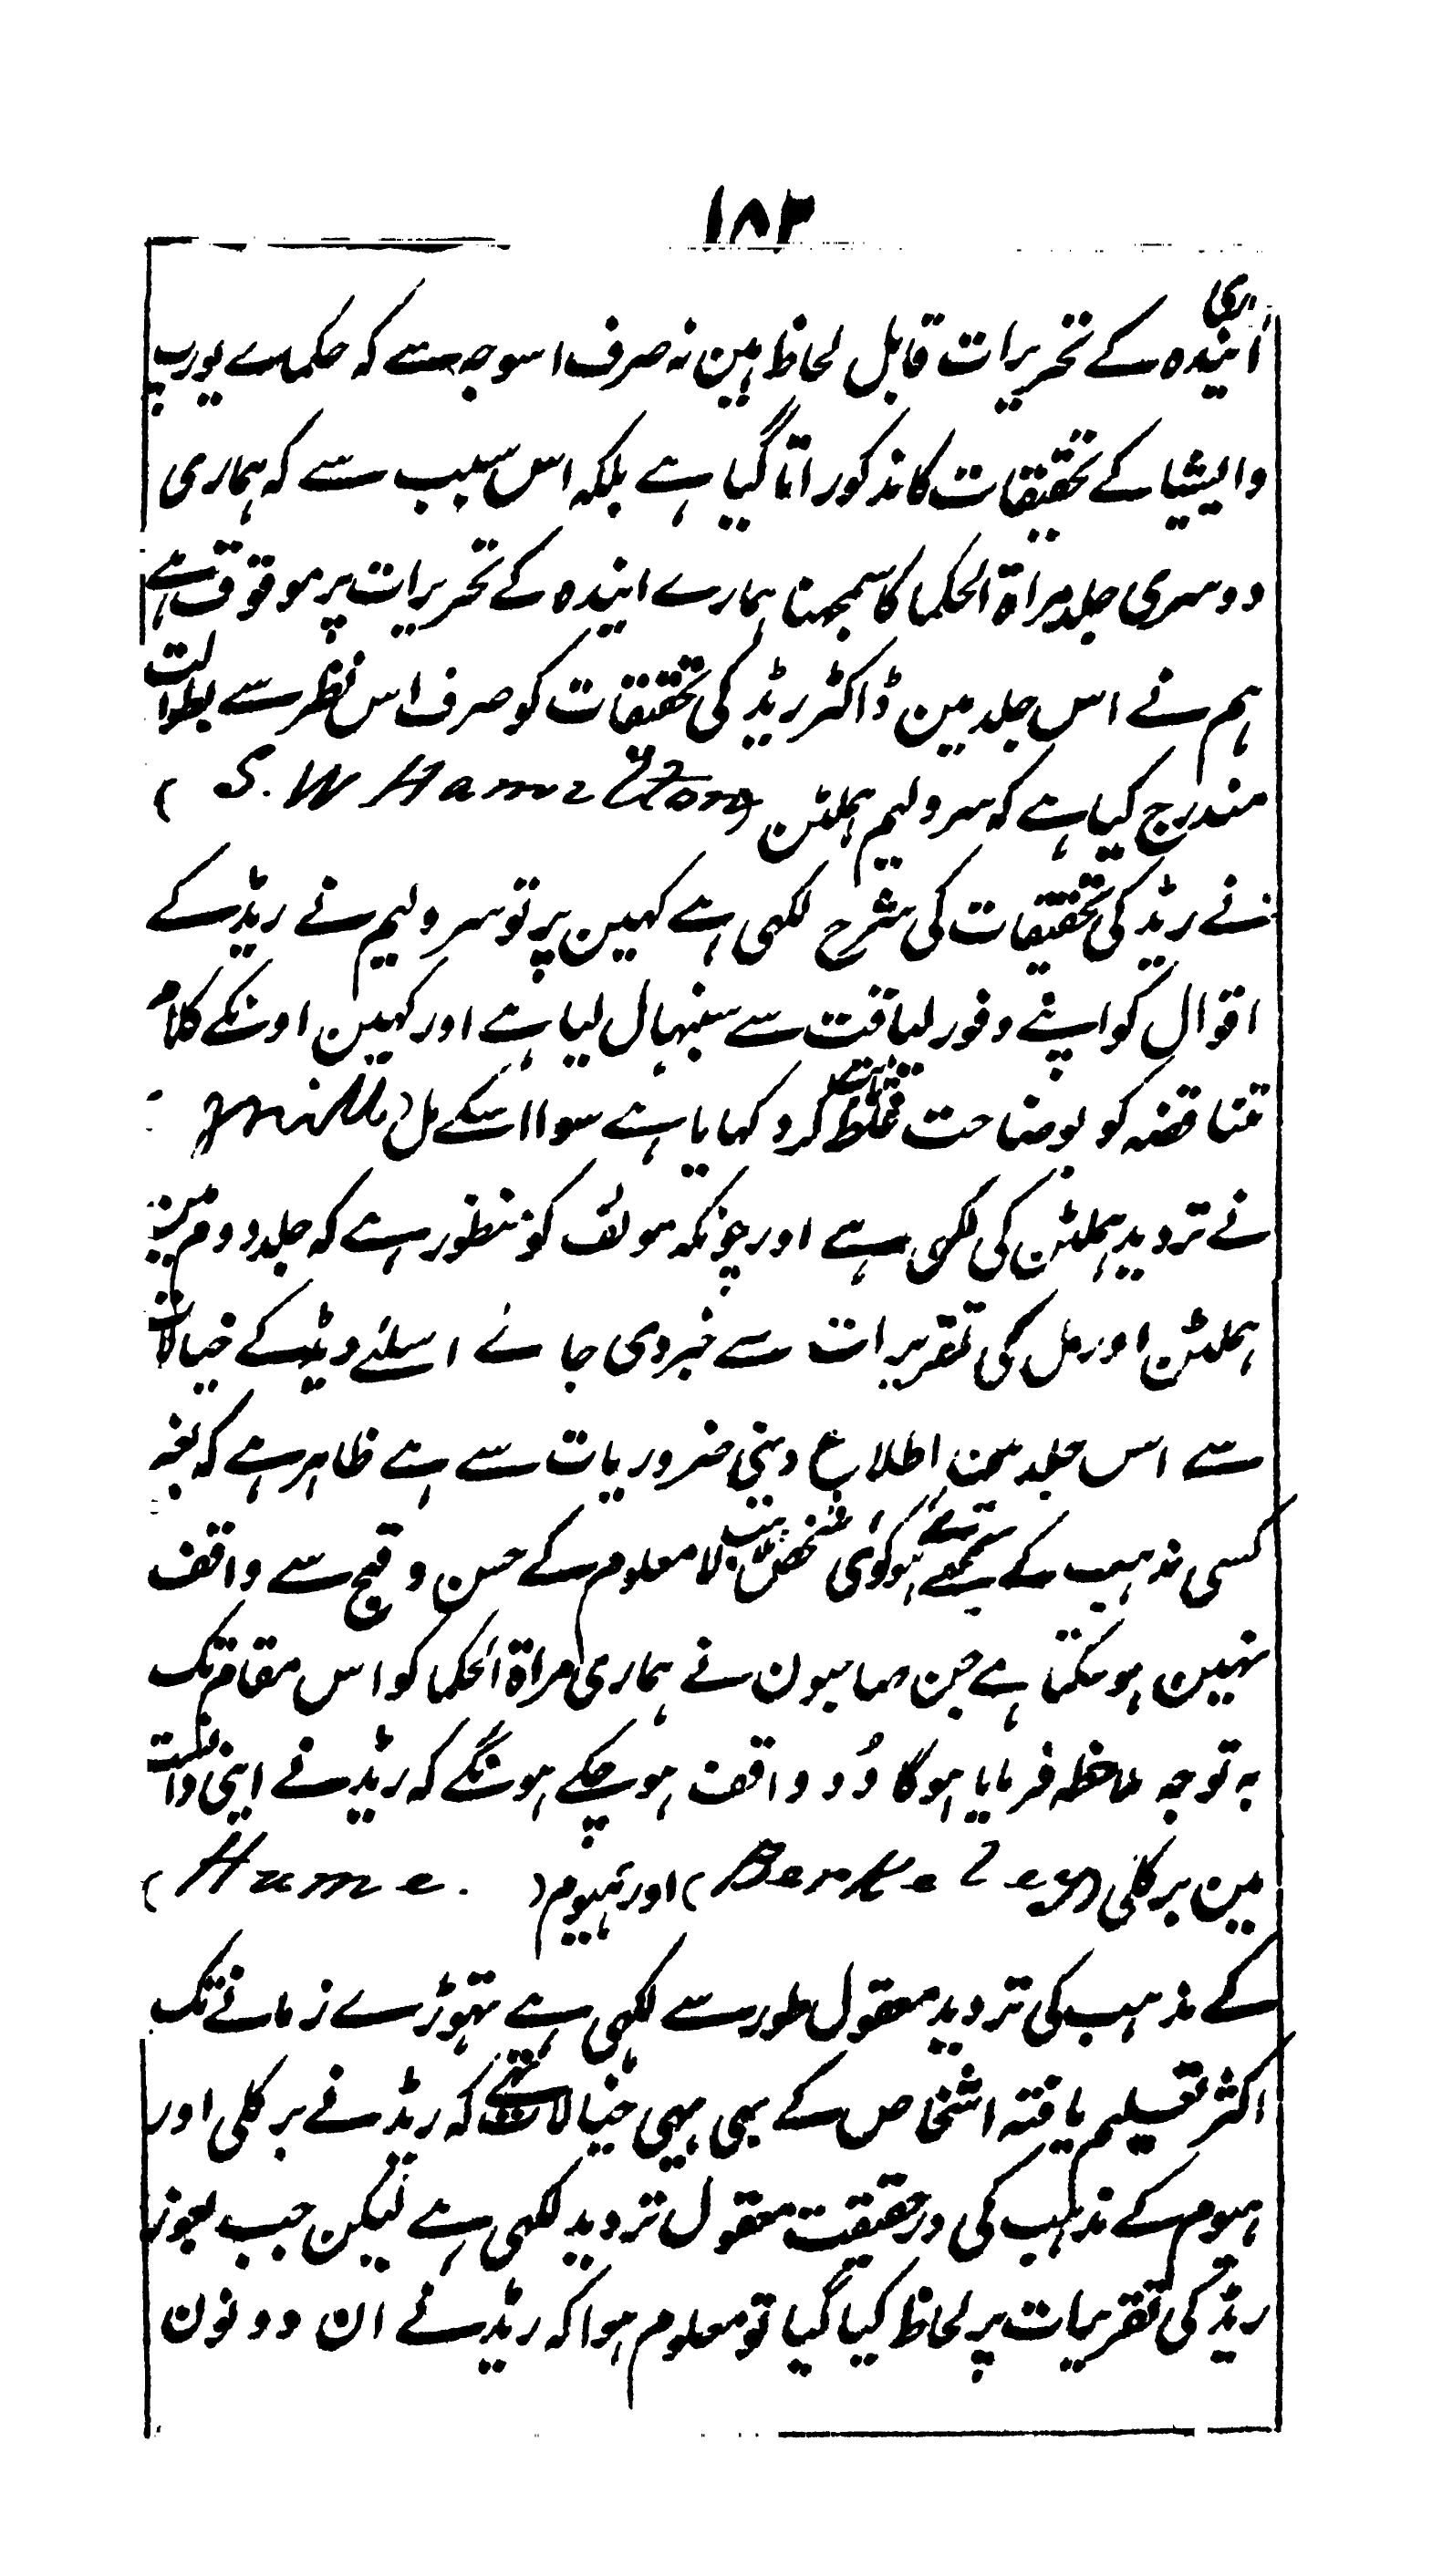 ۱۸۳
ہماری
آیندہ کے تحریرات قابل لحاظ ہین نہ صرف اسوجہ سے کہ حکماے یورپ
وایشیا کے تحقیقات کا مذکور اتا گیا ہے بلکہ اس سبب سے کہ ہماری
دوسری جلد مراۃ الحکما کا سمجہنا ہمارے ایندہ کے تحریرات پر موقوف ہے
ہم نے اس جلد مین ڈاکٹر ریڈ کی تحقیقات کو صرف اس نظر سے بطوالت
مندرج کیا ہے کہ سر ولیم ہملٹن (S. W Hamilton)
نے ریڈ کی تحقیقات کی شرح لکہی ہے کہین پر تو سر ولیم نے ریڈ کے
اقوال کو اپنے وفور لیاقت سے سنبہال لیا ہے اور کہین اونکے کلام
تناقضہ کو بوضاحت غلط ثابت کر دکہایا ہے سوا اسکے مل (Mill)
نے تردید ہملٹن کی لکہی ہے اور چونکہ مولف کو منظور ہے کہ جلد دوم مین
ہملٹن اور مل کی تقریرات سے خبر دی جائے اسلئے ریڈ کے خیالات
سے اس جلد مین اطلاع دینی ضروریات سے ہے ظاہر ہے کہ بغیر
کسی مذہب کے سمجہے ہوئے کوئی شخص مذہب لا معلوم کے حسن و قبح سے واقف
نہین ہو سکتا ہے جن صاحبون نے ہماری مراۃ الحکما کو اس مقام تک
بہ توجہ ملاحظہ فرمایا ہوگا وُہ واقف ہو چکے ہونگے کہ ریڈ نے اپنی دانست
مین برکلی (Berkeley) اور ہیوم (Hume.)
کے مذہب کی تردید معقول طور سے لکہی ہے تہوڑے زمانے تک
اکثر تعلیم یافتہ اشخاص کے بہی یہی خیالات تہے کہ ریڈ نے برکلی اور
ہیوم کے مذہب کی در حقیقت معقول تردید لکہی ہے لیکن جب بغور
ریڈ کی تقریرات پر لحاظ کیا گیا تو معلوم ہوا کہ ریڈ نے ان دونون